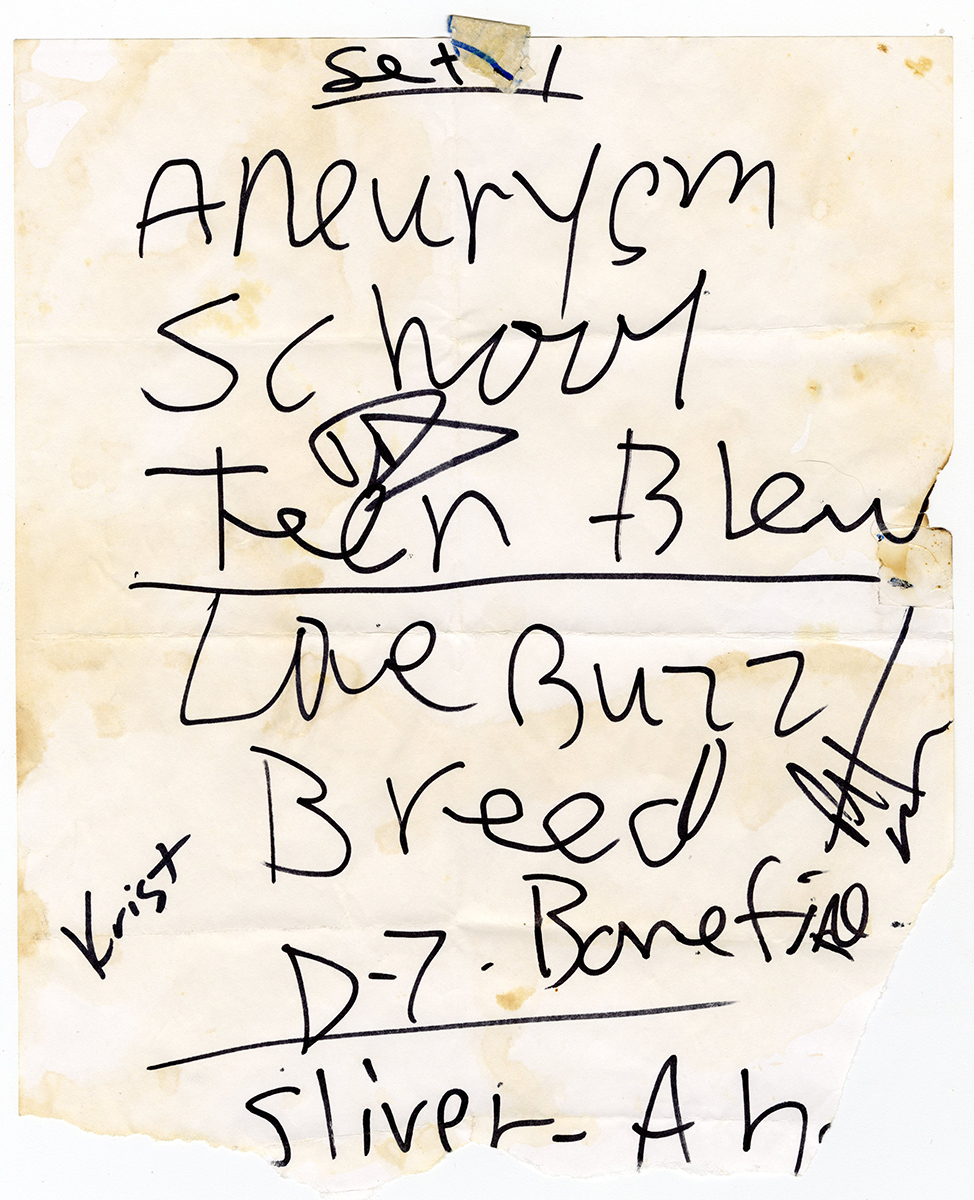 Set 1
Aneurysm
School
Teen Blew
Love Buzz
Breed
Krist
Bonefide
D-7.
Sliver - Ah.